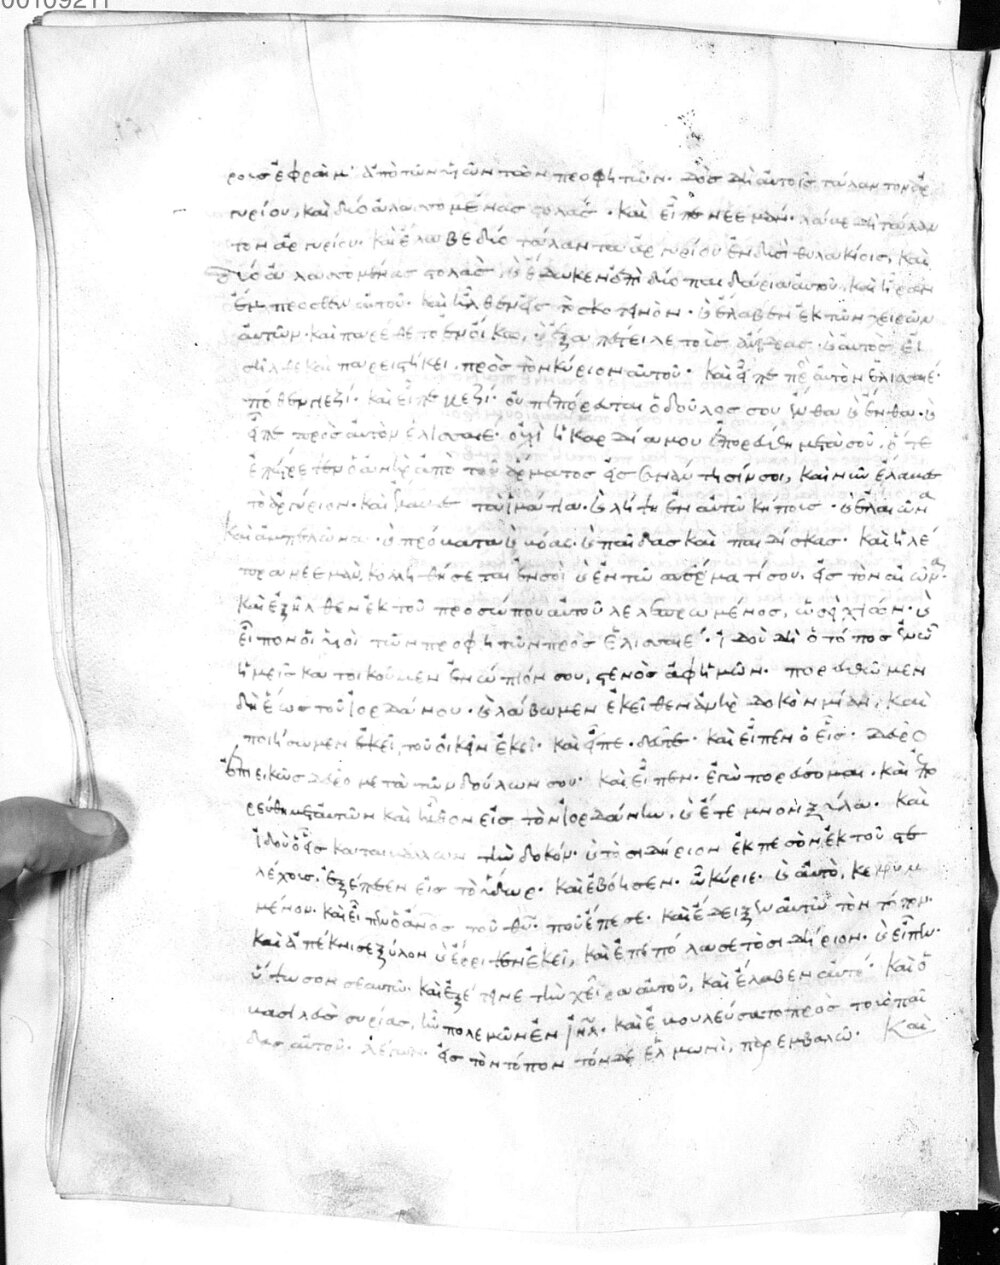 ροις ἐφραὶμ ἀπὸ τῶν υἱῶν τῶν προφητῶν· δὸς δὴ αὐτοῖς τάλαντον ἀρ
γυρίου, καὶ δύο ἀλλασσομένας στολάς· καὶ εἶπε νεεμάν· λάβε δὴ τάλαν
τον ἀργυρίου· καὶ ἔλαβε δύο τάλαντα ἀργυρίου ἐν δυσὶ θυλακίοις, καὶ
δύο ἀλλασσομένας στολὰς, καὶ ἔδωκεν ἐπὶ δύο παιδάρια αὐτοῦ, καὶ ἦραν
ἔμπροσθεν αὐτοῦ· καὶ ἦλθεν εἰς τὸ σκοτεινόν· καὶ ἔλαβεν ἐκ τῶν χειρῶν
αὐτῶν· καὶ παρέθετο ἐν οἴκῳ, καὶ ἐξαπέστειλε τοὺς ἄνδρας· καὶ αὐτὸς εἰ
σῆλθε καὶ παρειστήκει πρὸς τὸν κύριον αὐτοῦ· καὶ εἶπε πρὸς αὐτὸν ἐλισσαιέ·
πόθεν γιεζί· καὶ εἶπε γιεζί· οὐ πεπόρευται ὁ δοῦλός σου ἔνθα καὶ ἔνθα· καὶ
εἶπε πρὸς αὐτὸν ἐλισσαιέ· οὐχὶ ἡ καρδία μου ἐπορεύθη μετὰ σοῦ, ὅτε
ἐπέστρεψεν ὁ ἀνὴρ ἀπὸ τοῦ ἅρματος εἰς συνάντησίν σοι, καὶ νῦν ἔλαβες
τὸ ἀργύριον· καὶ ἔλαβες τὰ ἱμάτια· καὶ λήψῃ ἐν αὐτῷ κήπους· καὶ ἐλαιῶνα
καὶ ἀμπελῶνα· καὶ πρόβατα καὶ βόας· καὶ παῖδας καὶ παιδίσκας· καὶ ἡ λέ
πρα νεεμὰν κολληθήσεται ἐν σοὶ καὶ ἐν τῷ σπέρματί σου, εἰς τὸν αἰῶνα·
καὶ ἐξῆλθεν ἐκ τοῦ προσώπου αὐτοῦ λελεπρωμένος, ὡσεὶ χιών· καὶ
εἶπον οἱ υἱοὶ τῶν προφητῶν πρὸς ἐλισσαιέ· ἰδοὺ δὴ ὁ τόπος ἐν ᾧ
ἡμεῖς κατοικοῦμεν ἐνώπιόν σου, στενὸς ἀφ' ἡμῶν· πορευθῶμεν
δὴ ἕως τοῦ ἰορδάνου· καὶ λάβωμεν ἐκεῖθεν ἀνὴρ δοκὸν μίαν, καὶ
ποιήσωμεν ἐκεῖ, τοῦ οἰκεῖν ἐκεῖ· καὶ εἶπε· δεῦτε· καὶ εἶπεν ὁ εἷς· δεῦρο
ἐπιεικῶς δεῦρο μετὰ τῶν δούλων σου· καὶ εἶπεν· ἐγὼ πορεύσομαι· καὶ ἐπο
ρεύθη μετ' αὐτῶν καὶ ἦλθον εἰς τὸν ἰορδάνην, καὶ ἔτεμνον ξύλα· καὶ
ἰδοὺ ὁ εἷς καταβάλλων τὴν δοκόν· καὶ τὸ σιδήριον ἐκπεσὸν ἐκ τοῦ στε
λέχους, ἐξέπεσεν εἰς τὸ ὕδωρ· καὶ ἐβόησεν· ὦ κύριε· καὶ αὐτὸ, κεκρυμ
μένον· καὶ εἶπεν ὁ ἄνος τοῦ θυ· ποῦ ἔπεσε· καὶ ἔδειξεν αὐτῷ τὸν τόπον·
καὶ ἀπέκνισε ξύλον καὶ ἔρριψεν ἐκεῖ, καὶ ἐπεπόλασε τὸ σιδήριον· καὶ εἶπεν·
ὕψωσον σεαυτῷ· καὶ ἐξέτεινε τὴν χεῖρα αὐτοῦ, καὶ ἔλαβεν αὐτό· καὶ ὁ
βασιλεὺς συρίας, ἦν πολεμῶν ἐν ιηλ· καὶ ἐβουλεύσατο πρὸς τοὺς παῖ
δας αὐτοῦ· λέγων· εἰς τὸν τόπον τόνδε ἐλμωνὶ, παρεμβαλῶ· καὶ